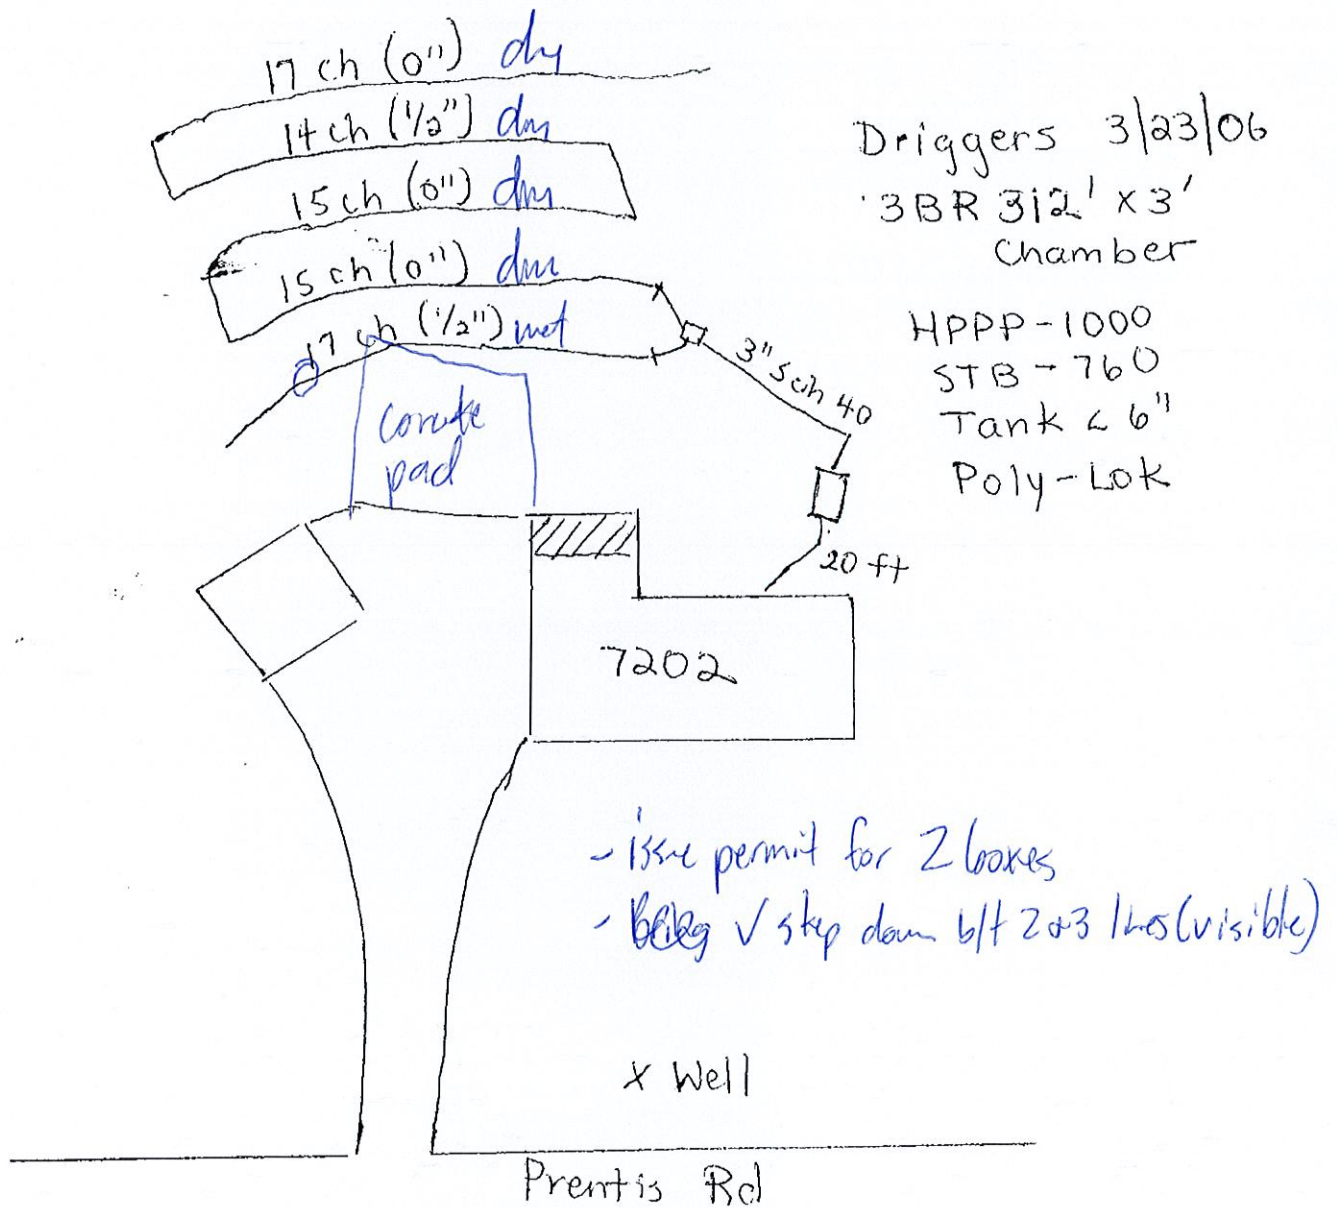 17 ch (0") dry
14 ch (1/2") dry
15 ch (0") dry
15 ch (0") dry
17 ch (1/2") wet
Driggers 3/23/06
3BR 312' x 3'
Chamber
HPPP-1000
STB-760
Tank < 6"
Poly-Lok
3" Sch 40
concrete
pad
20 ft
7202
- issue permit for 2 boxes
- ✓ step down b/t 2 or 3 lines (visible)
x Well
Prentis Rd